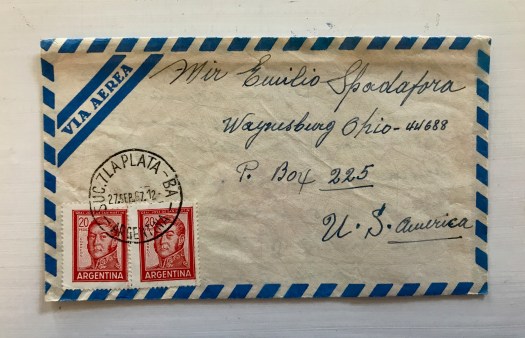 VIA AEREA
Mir Emilio Spadafora
Waynesburg Ohio - 44688
P. Box 225
U. S. America
SUC. 7 LA PLATA - BA
27 SEP. 67. 12
ARGENTINA
20
ARGENTINA
20
ARGENTINA